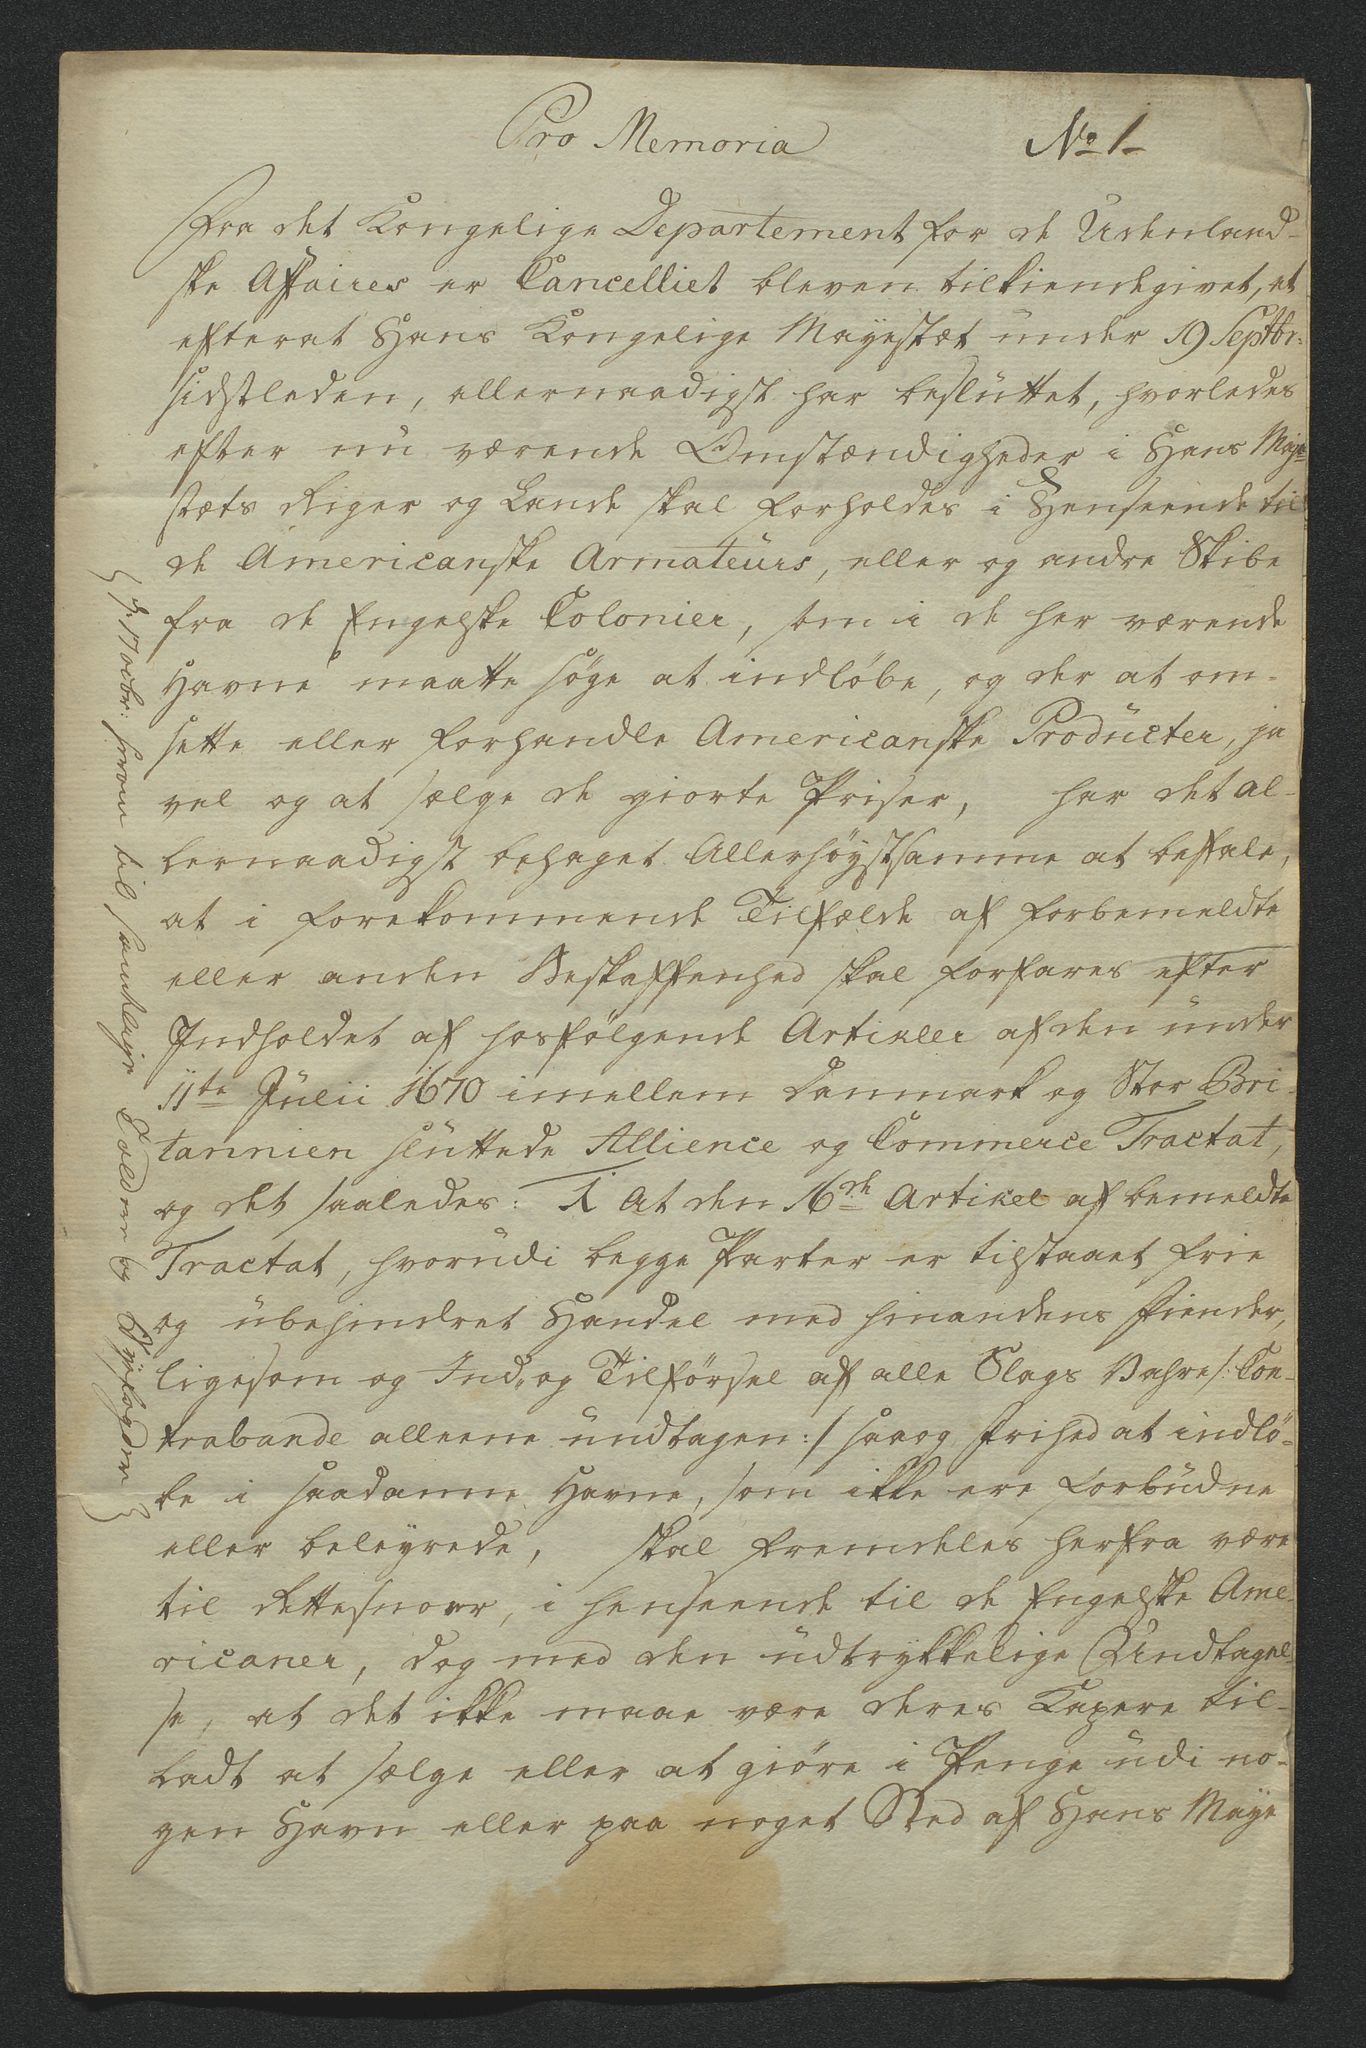 Pro Memoria
No 1
Fra det Kongelige Departement for de Udenland-
ske Affairer er Cancelliet bleven tilkiendegivet, at
efterat Hans Kongelige Mayestæt under 19 Septbr:
sidstleden, allernaadigst har besluttet, hvorledes
efter nu værende Omstændigheder i Hans Maje-
stæts Riger og Lande skal forholdes i Henseende til
de Americanske Armateurs, eller og andre Skibe
fra de Engelske Colonier, som i de her værende
Havne maatte søge at indløbe, og der at om-
sette eller forhandle Americanske Producter, ja
vel og at sælge de giorte Priser, har det al-
lernaadigst behaget Allerhøystsamme at befale,
at i forekommende Tilfælde af forbemeldte
eller anden Beskaffenhed skal forfares efter
Indholdet af hosfølgende Artikler af den under
11te Julii 1670 imellem Danmark og Stor Bri-
tannien sluttede Allience og Commerce Tractat,
og det saaledes: 1 At den 16de Artikel af bemeldte
Tractat, hvorudi begge Parter er tilstaaet frie
og ubehindret Handel med hinandens Fiender,
ligesom og Ind- og Tilførsel af alle Slags Vahre /: Con-
trabande alleene undtagen :/ saaog Frihed at indlø-
be i saadanne Havne, som ikke ere forbudne
eller beleyrede, skal fremdeles herfra være
til Rettesnoer, i henseende til de Engelske Ame-
ricaner, dog med den udtrykkelige Undtagel-
se, at det ikke maae være deres Kapere til-
ladt at sælge eller at giøre i Penge udi no-
gen Havn eller paa noget Sted af Hans Maye
17 Octbr: til samtlige Toldere og Byefogder